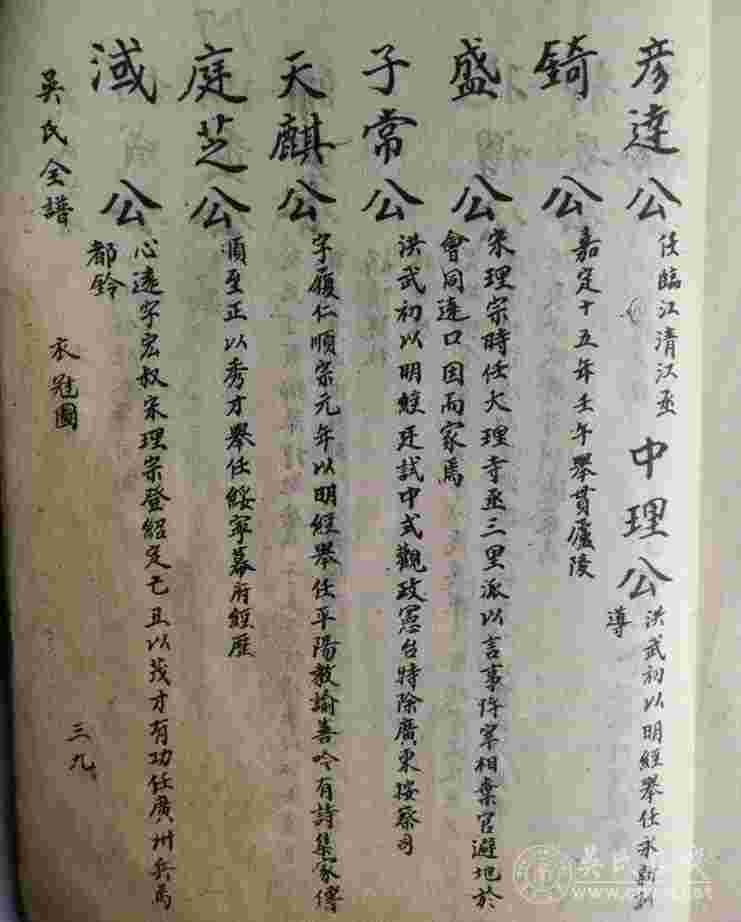 彦達公 任臨江清江丞 中理公 洪武初以明經舉任永新訓
導
錡公 嘉定十五年壬午舉貢廬陵
盛公 宋理宗時任大理寺丞三里派以言事忤宰相棄官避地於
會同遠口因而家焉
子常公 洪武初以明經廷試中式觀政憲台特除廣東按察司
天麒公 字履仁順宗元年以明經舉任平陽教諭善吟有詩集家傳
庭芝公 順至正以秀才舉任綏寧幕府經歷
淢公 心遠字宏叔宋理宗登紹定己丑以茂才有功任廣州兵馬
都鈐
吳氏全譜 衣冠圖 三九